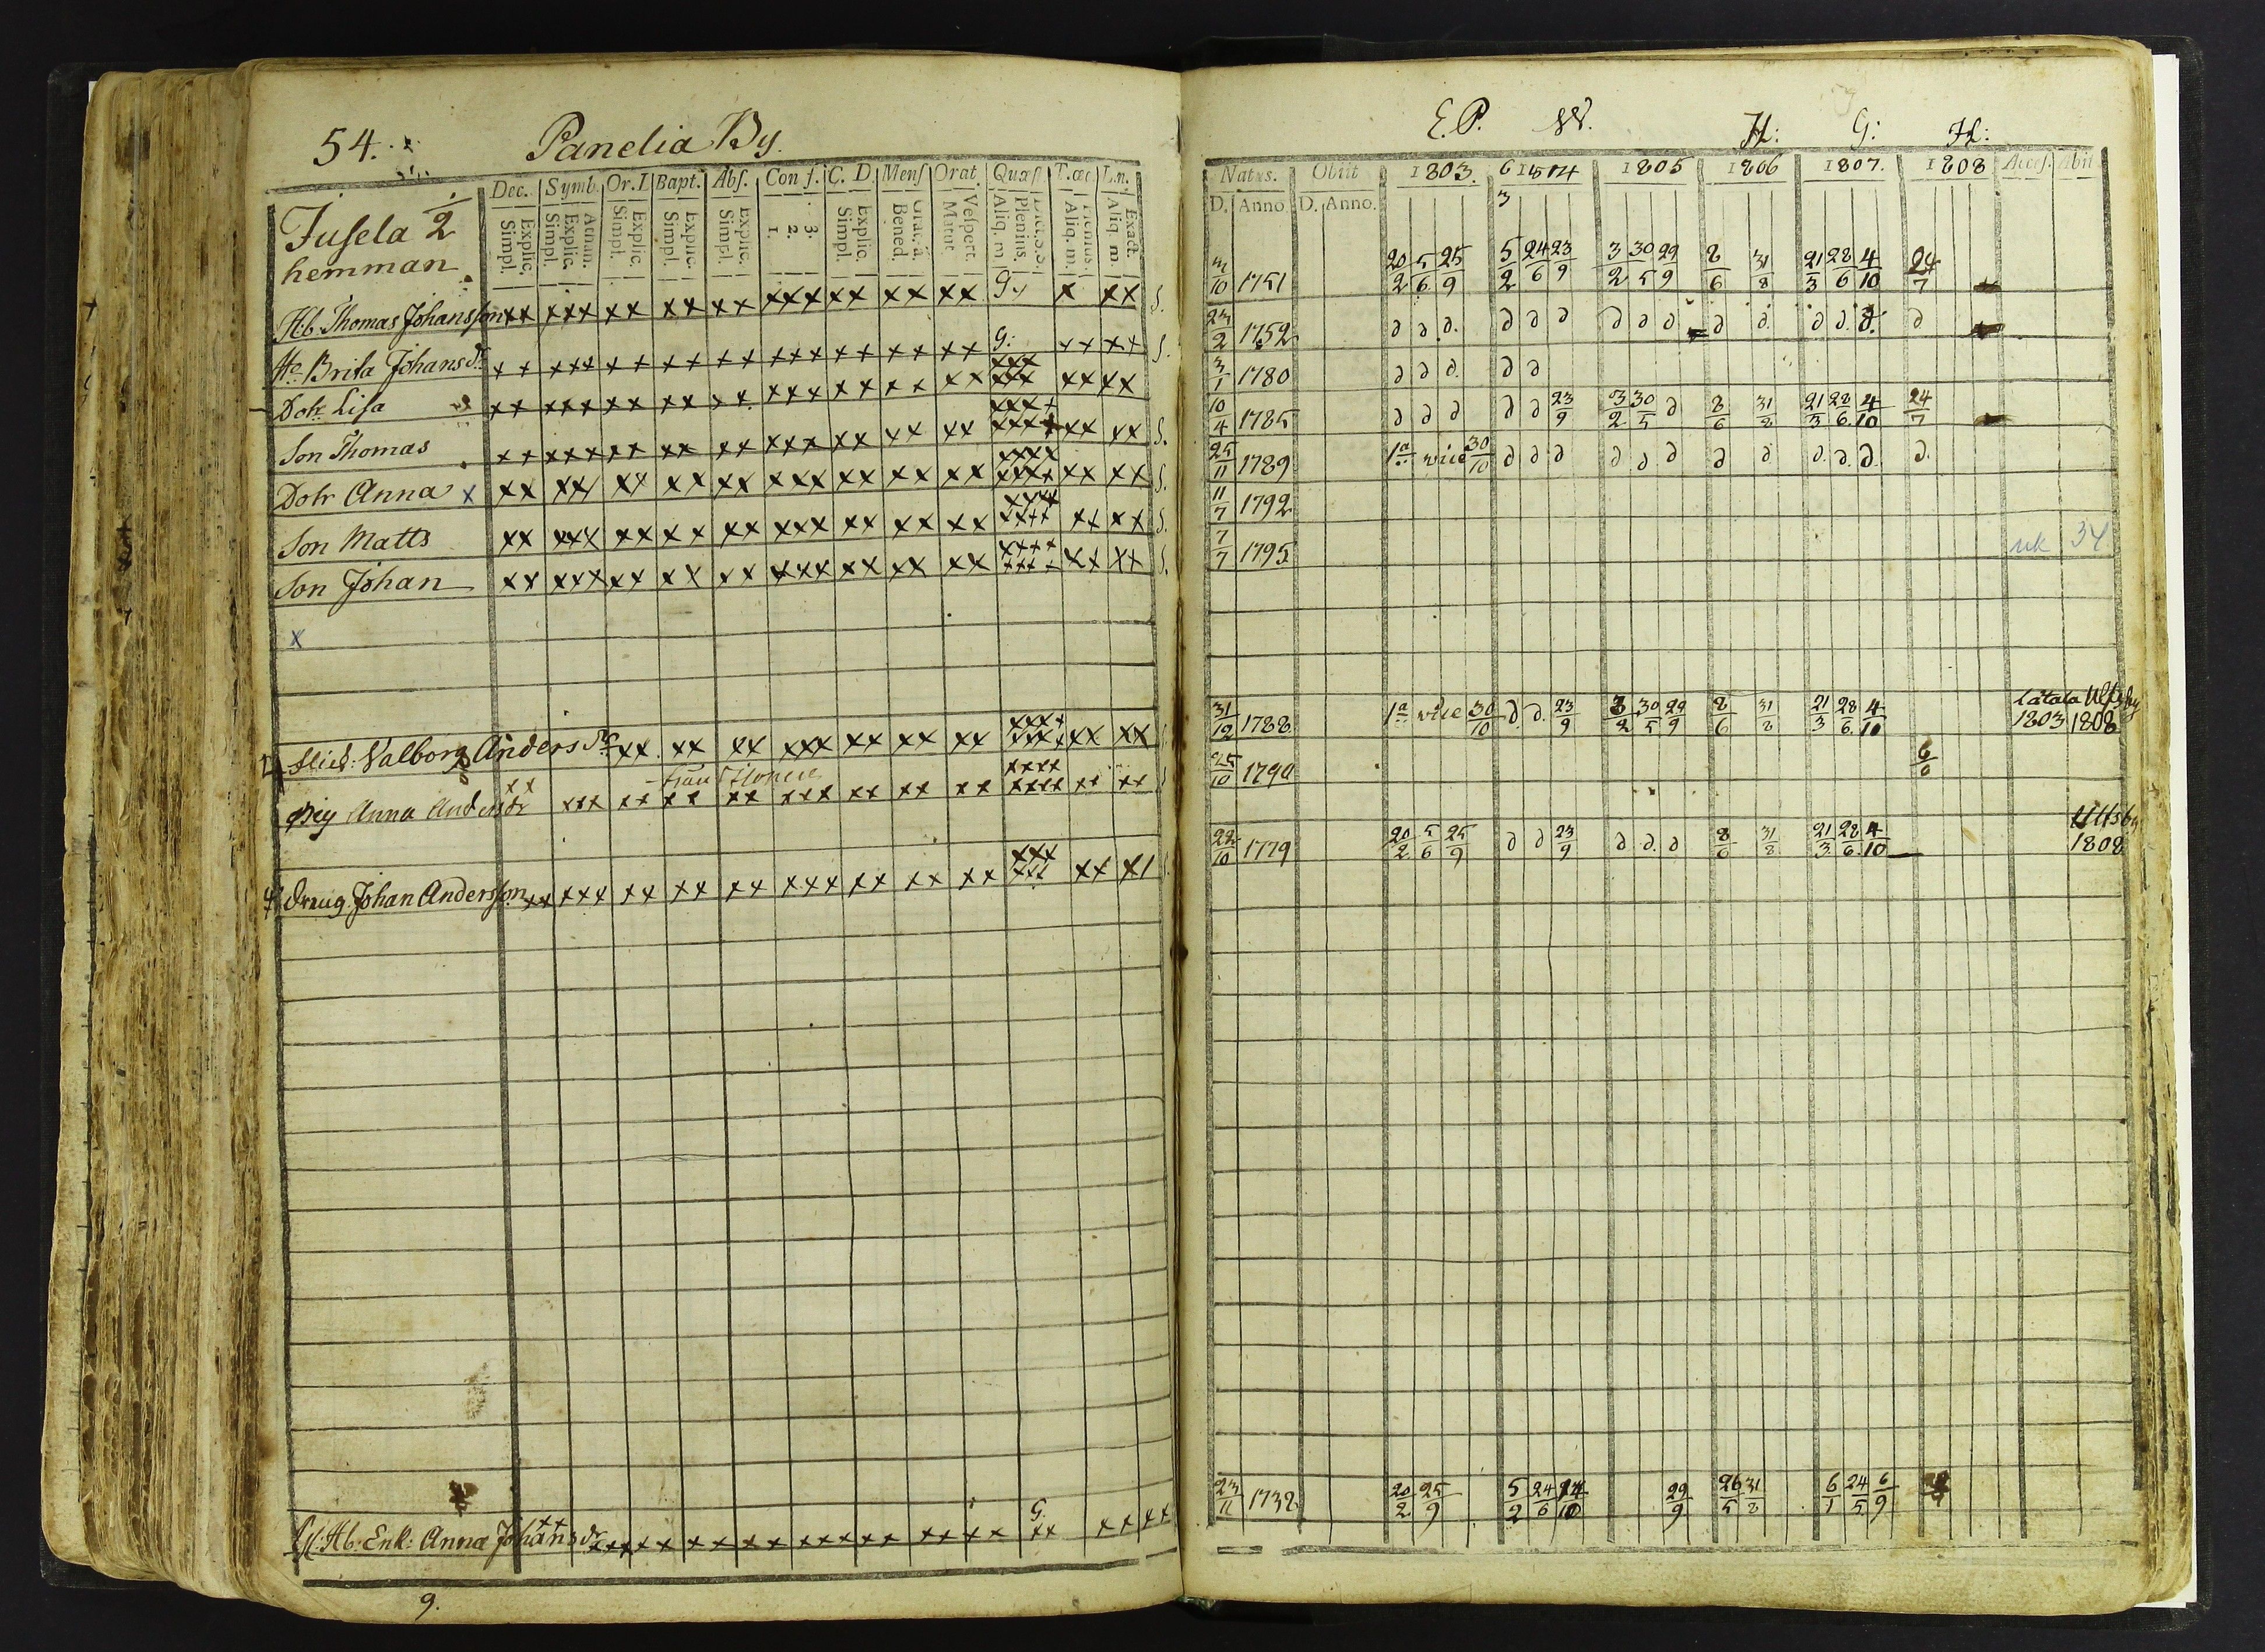 54.
Panelia By.
Dec. Symb. Or. D. Bapt. Abs. Conf. C. D. Mens Orat. Quæst T. œc L.n.
Explic. Simpl. Athan. Explic. Simpl. Explic. Simpl. Explic. Simpl. Explic. Simpl. 3. 2. 1. Explic. Simpl. Bened. Vespert. Matut. Plenius. Aliq. m. Aliq. m. Exact. Aliq. m.
Jusela 1/2
hemman
Hb. Thomas Johansson xx xxx xx xx xx xxx xx xx xx G. x xx S.
Ho Brita Johansdr xx xxx xx xx xx xxx xx xx xx G: xx xx S.
Dotr Lisa xx xxx xx xx xx xxx xx xx xx xxx xxx xx xx
Son Thomas xx xxx xx xx xx xxx xx xx xx xxxx xxxx xx xx S.
Dotr Anna x xx xxx xx xx xx xxx xx xx xx xxxx xxxx xx xx S.
Son Matts xx xxx xx xx xx xxx xx xx xx xxxx xxxx xx xx S.
Son Johan xx xxx xx xx xx xxx xx xx xx xxxx xxxx xx xx S.
x
Valborg Andersdr xx xx xx xxx xx xx xx xxxx xxxx xx xx
Anna Andersdr xx xxx xx xx xx xxx xx xx xx xxxx xxxx xx xx
Dreng Johan Andersson xx xxx xx xx xx xxx xx xx xx xxx xxx xx x
Hb. Enk: Anna Johansdr xx G. xx xx xx
9.
E. P. W. H: G: H:
Natus. Obiit 1803. 1805 1806 1807. 1808 Access. Abiit
D. Anno. D. Anno.
1751 20/2 5/6 25/9 5/2 24/6 23/9 3/2 30/5 29/9 8/6 31/8 21/3 28/6 4/10 24/7
23/2 1752 ∂ ∂ ∂. ∂ ∂ ∂ ∂ ∂ ∂ ∂ ∂. ∂. ∂. ∂. ∂
3/1 1780 ∂ ∂ ∂. ∂ ∂
10/4 1785 ∂ ∂ ∂ ∂ ∂ 23/9 3/2 30/5 ∂ 8/6 31/8 21/3 28/6 4/10 24/7
25/11 1789 1a vice 30/10 ∂ ∂ ∂ ∂ ∂ ∂ ∂ ∂ ∂. ∂. ∂. ∂.
11/7 1792
7/7 1795 uk 34
31/12 1788 1a vice 30/10 ∂ ∂. 23/9 3/2 30/5 29/9 8/6 31/8 21/3 28/6 4/10 Låtala Ulfsby
1803 1808
25/10 1790 6/6
22/10 1779 20/2 5/6 25/9 ∂ ∂ 23/9 ∂ ∂. ∂ 8/6 31/8 21/3 28/6 4/10 Ulfsby
1808
23/11 1732 20/2 25/9 5/2 24/6 29/9 26/5 31/8 6/1 24/5 6/9